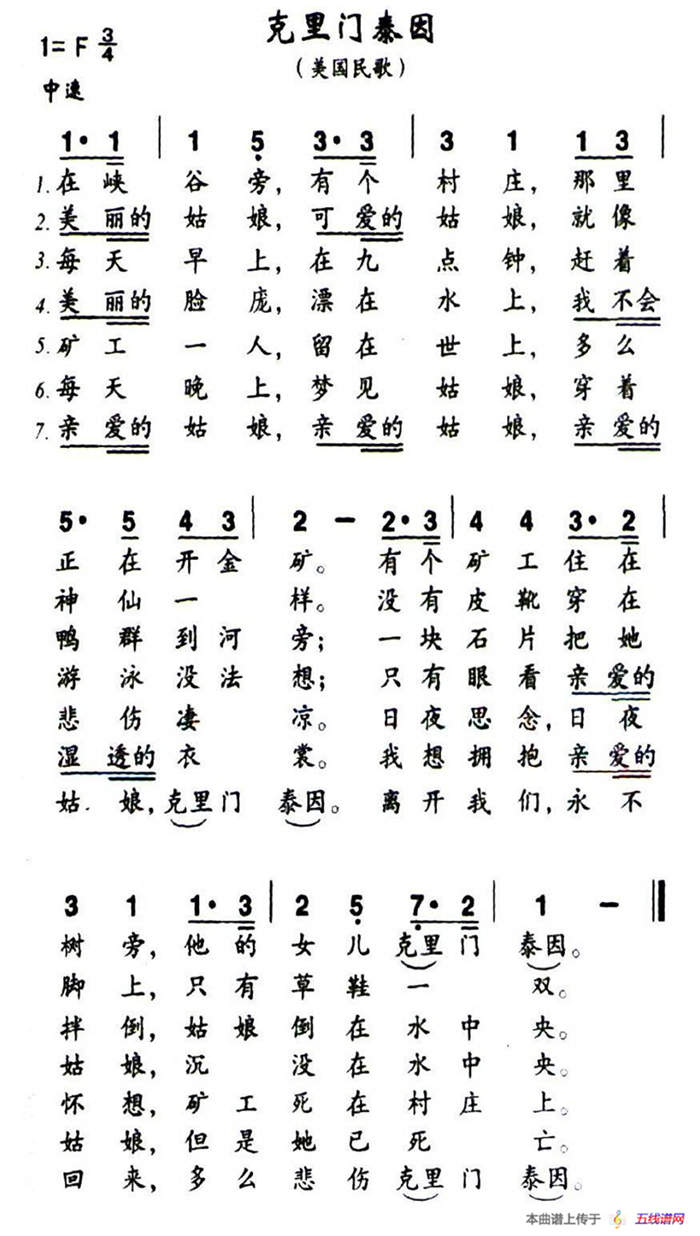 克里门泰因
1= F 3/4
(美国民歌)
中速
1· 1 | 1 5 3· 3 | 3 1 1 3 |
1. 在峡谷旁, 有个村庄, 那里
2. 美丽的姑娘, 可爱的姑娘, 就像
3. 每天早上, 在九点钟, 赶着
4. 美丽的脸庞, 漂在水上, 我不会
5. 矿工一人, 留在世上, 多么
6. 每天晚上, 梦见姑娘, 穿着
7. 亲爱的姑娘, 亲爱的姑娘, 亲爱的
5· 5 4 3 | 2 － 2· 3 | 4 4 3· 2 |
正在开金矿。有个矿工住在
神仙一样。没有皮靴穿在
鸭群到河旁; 一块石片把她
游泳没法想; 只有眼看亲爱的
悲伤凄凉。日夜思念, 日夜
湿透的衣裳。我想拥抱亲爱的
姑娘, 克里门泰因。离开我们, 永不
3 1 1· 3 | 2 5 7· 2 | 1 － ‖
树旁, 他的女儿克里门泰因。
脚上, 只有草鞋一双。
拌倒, 姑娘倒在水中央。
姑娘, 沉没在水中央。
怀想, 矿工死在村庄上。
姑娘, 但是她已死亡。
回来, 多么悲伤克里门泰因。
本曲谱上传于 五线谱网